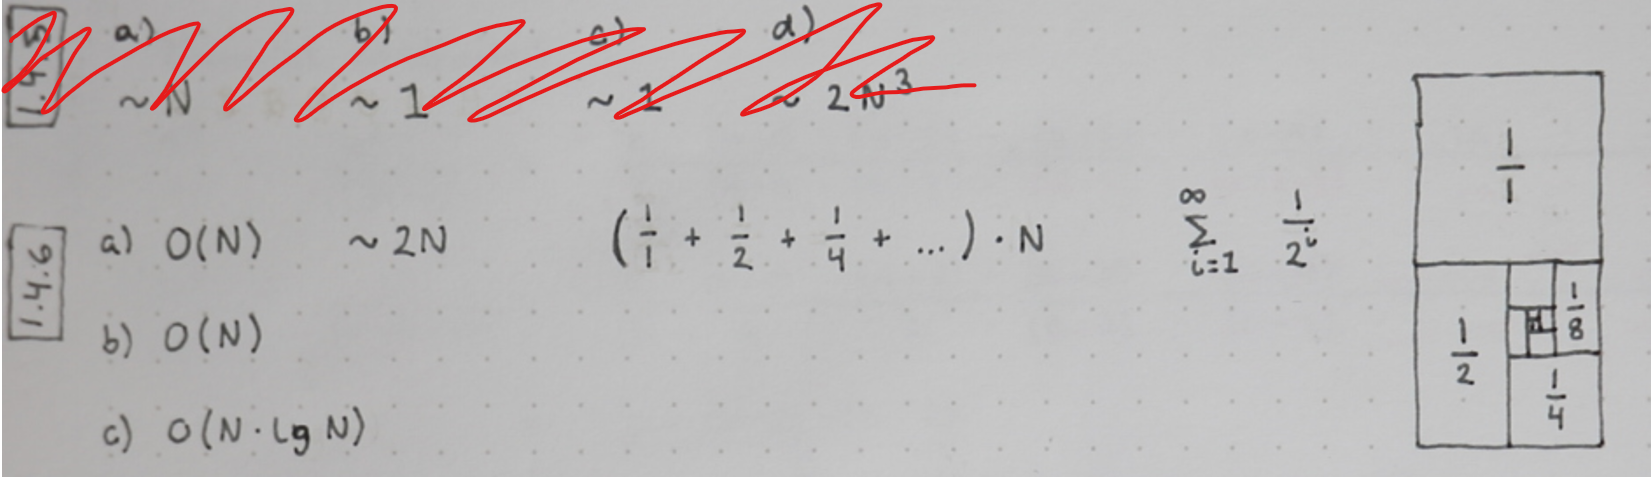 1.4.5 a) b) c) d)
~ N ~ 1 ~ 1 ~ 2N³
1.4.6 a) O(N) ~ 2N (1/1 + 1/2 + 1/4 + ...) · N ∞ Σ i=1 1/2^i
b) O(N)
c) O(N · lg N)
1/1
1/2 1/8
1/4